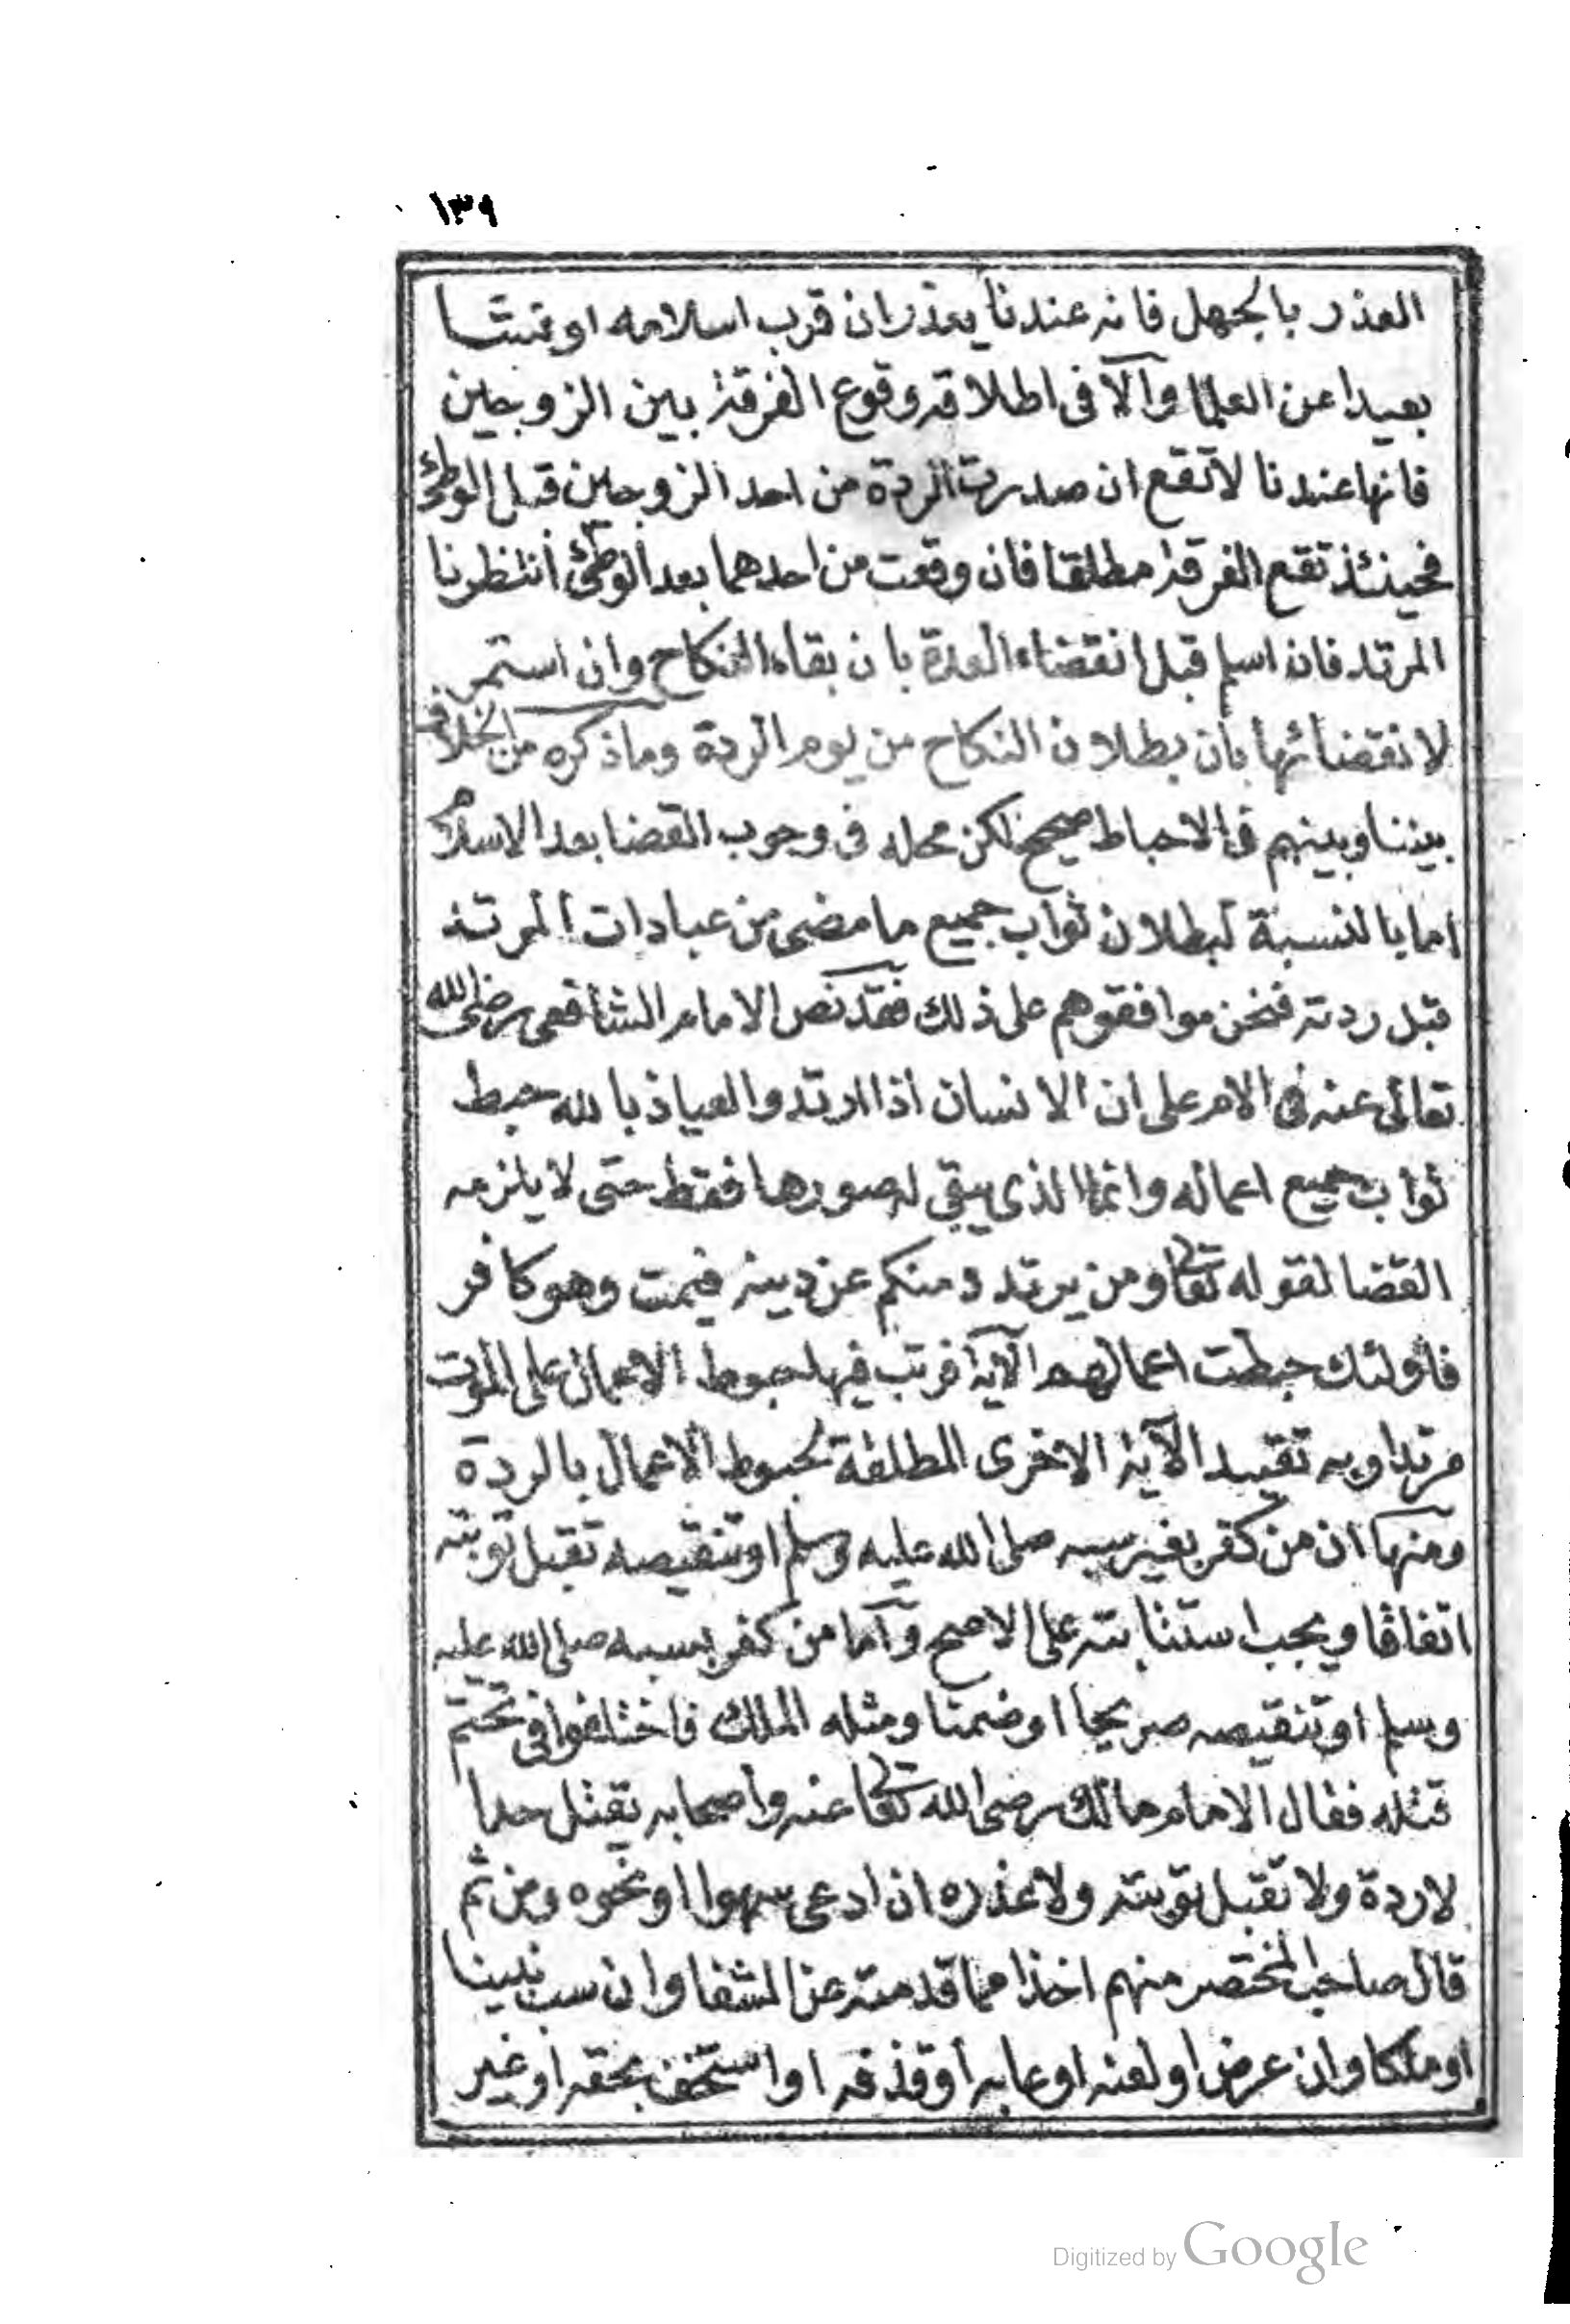 ١٣٩
العذر بالجهل فانه عندنا يعذر ان قرب اسلامه او نشا
بعيدا عن العلما والا فى اطلاقه وقوع الفرقة بين الزوجين
فانها عندنا لا تقع ان صدرت الردة من احد الزوجين قبل الوطئ
فحينئذ تقع الفرقة مطلقا فان وقعت من احدهما بعد الوطئ انتظرنا
المرتد فان اسلم قبل انقضاء العدة بان بقاء النكاح وان استمر
لانقضائها بان بطلان النكاح من يوم الردة وما ذكره من الخلاف
بيننا وبينهم فى الاحباط صحيح لكن محله فى وجوب القضا بعد الاسلام
اما بالنسبة لبطلان ثواب جميع ما مضى من عبادات المرتد
قبل ردته فنحن موافقوهم على ذلك فقد نص الامام الشافعى رضى الله
تعالى عنه فى الام على ان الانسان اذا ارتد والعياذ بالله حبط
ثواب جميع اعماله وانما الذى يبقى له صورها فقط حتى لا يلزمه
القضا لقوله تعا ومن يرتدد منكم عن دينه فيمت وهو كافر
فاولئك حبطت اعمالهم الآية فرتب فيها حبوط الاعمال على الموت
مرتدا وبه تقييد الآية الاخرى المطلقة لحبوط الاعمال بالردة
ومنها ان من كفر بغير سبه صلى الله عليه وسلم او تنقيصه تقبل توبته
اتفاقا ويجب استتابته على الاصح واما من كفر بسبه صلى الله عليه
وسلم او تنقيصه صريحا او ضمنا ومثله الملك فاختلفوا فى تحتم
قتله فقال الامام مالك رضى الله تعا عنه واصحابه يقتل حدا
لا ردة ولا تقبل توبته ولا عذره ان ادعى سهوا او نحوه ومن ثم
قال صاحب المختصر منهم اخذا مما قدمته عن الشفا وان سب نبينا
او ملكا وان عرض او لعنه او عابه او قذفه او استخف بحقه او غير
Digitized by Google